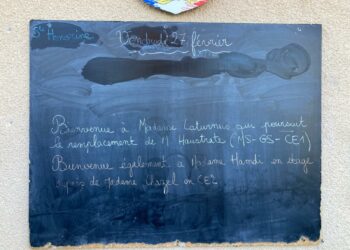 Ste Honorine
Vendredi 27 février
Bienvenue à Madame Laturnus qui poursuit
le remplacement de M Haustrate (MS-GS-CE1)
Bienvenue également à Madame Hamdi en stage
auprès de Madame Chazel en CE2